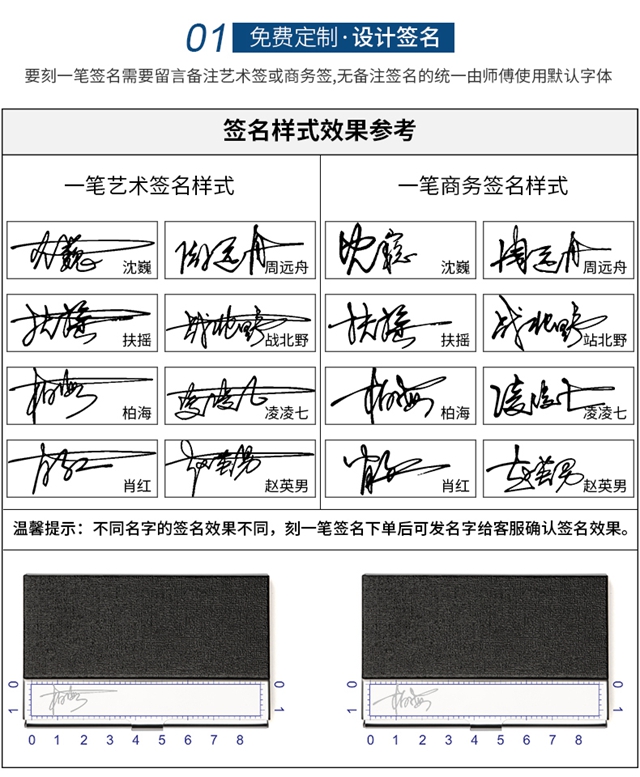 01 免费定制·设计签名
要刻一笔签名需要留言备注艺术签或商务签,无备注签名的统一由师傅使用默认字体
签名样式效果参考
一笔艺术签名样式 一笔商务签名样式
沈巍 周远舟 沈巍 周远舟
扶摇 战北野 扶摇 站北野
柏海 凌凌七 柏海 凌凌七
肖红 赵英男 肖红 赵英男
温馨提示：不同名字的签名效果不同，刻一笔签名下单后可发名字给客服确认签名效果。
0 0 0 0
柏海 柏海
1 1 1 1
0 1 2 3 4 5 6 7 8 0 1 2 3 4 5 6 7 8